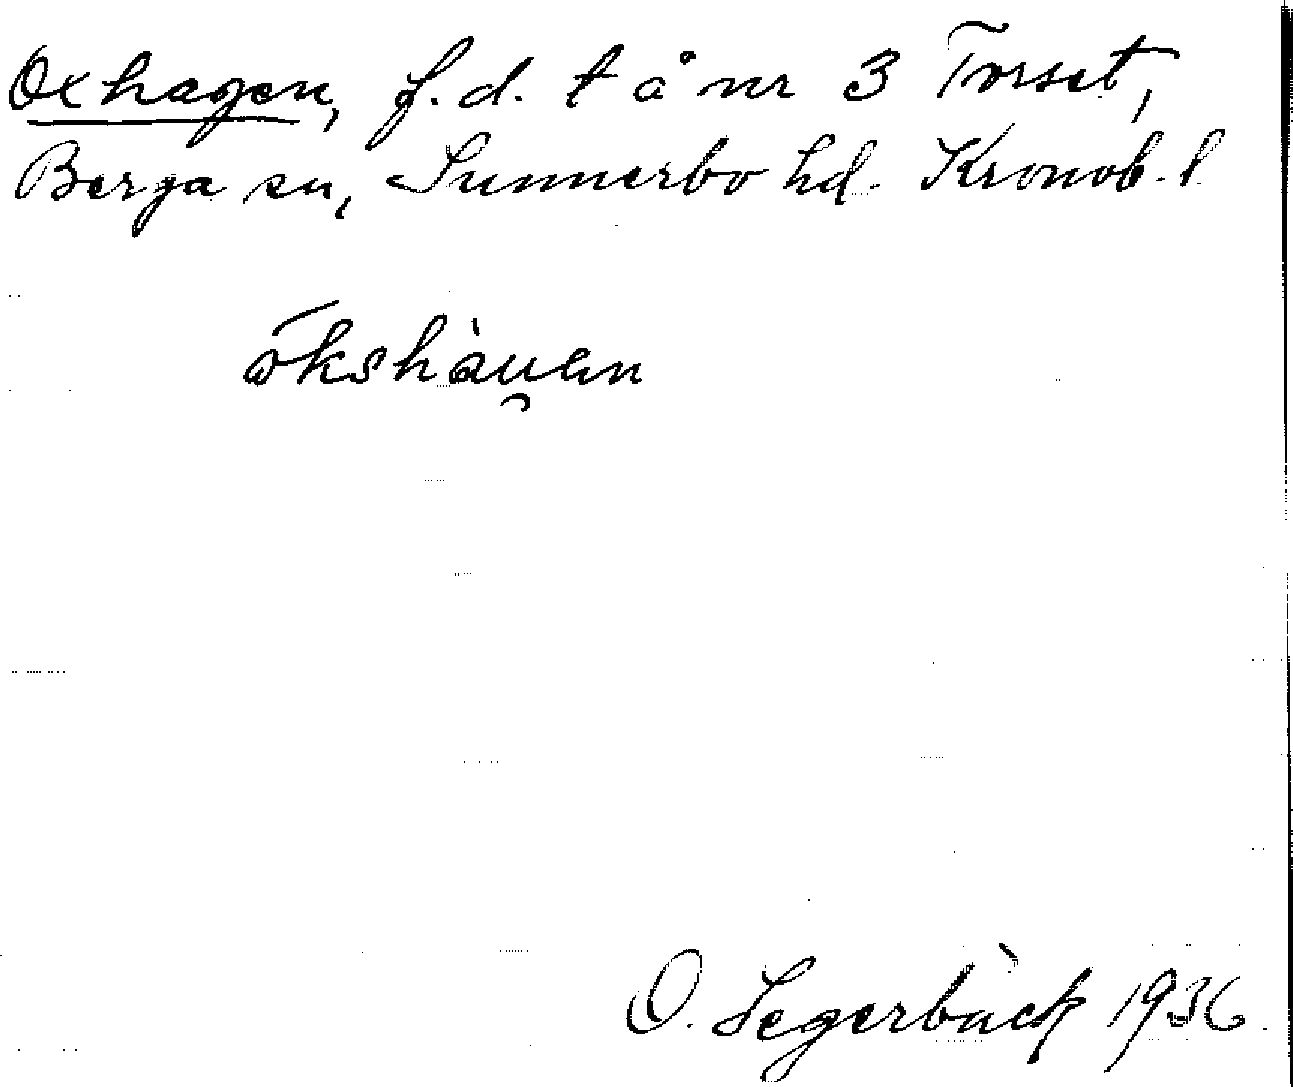 Oxhagen, f.d. t å nr 3 Torset,
Berga sn, Sunnerbo hd. Kronob. l
ökshàu̯en
O. Segerbäck 1936